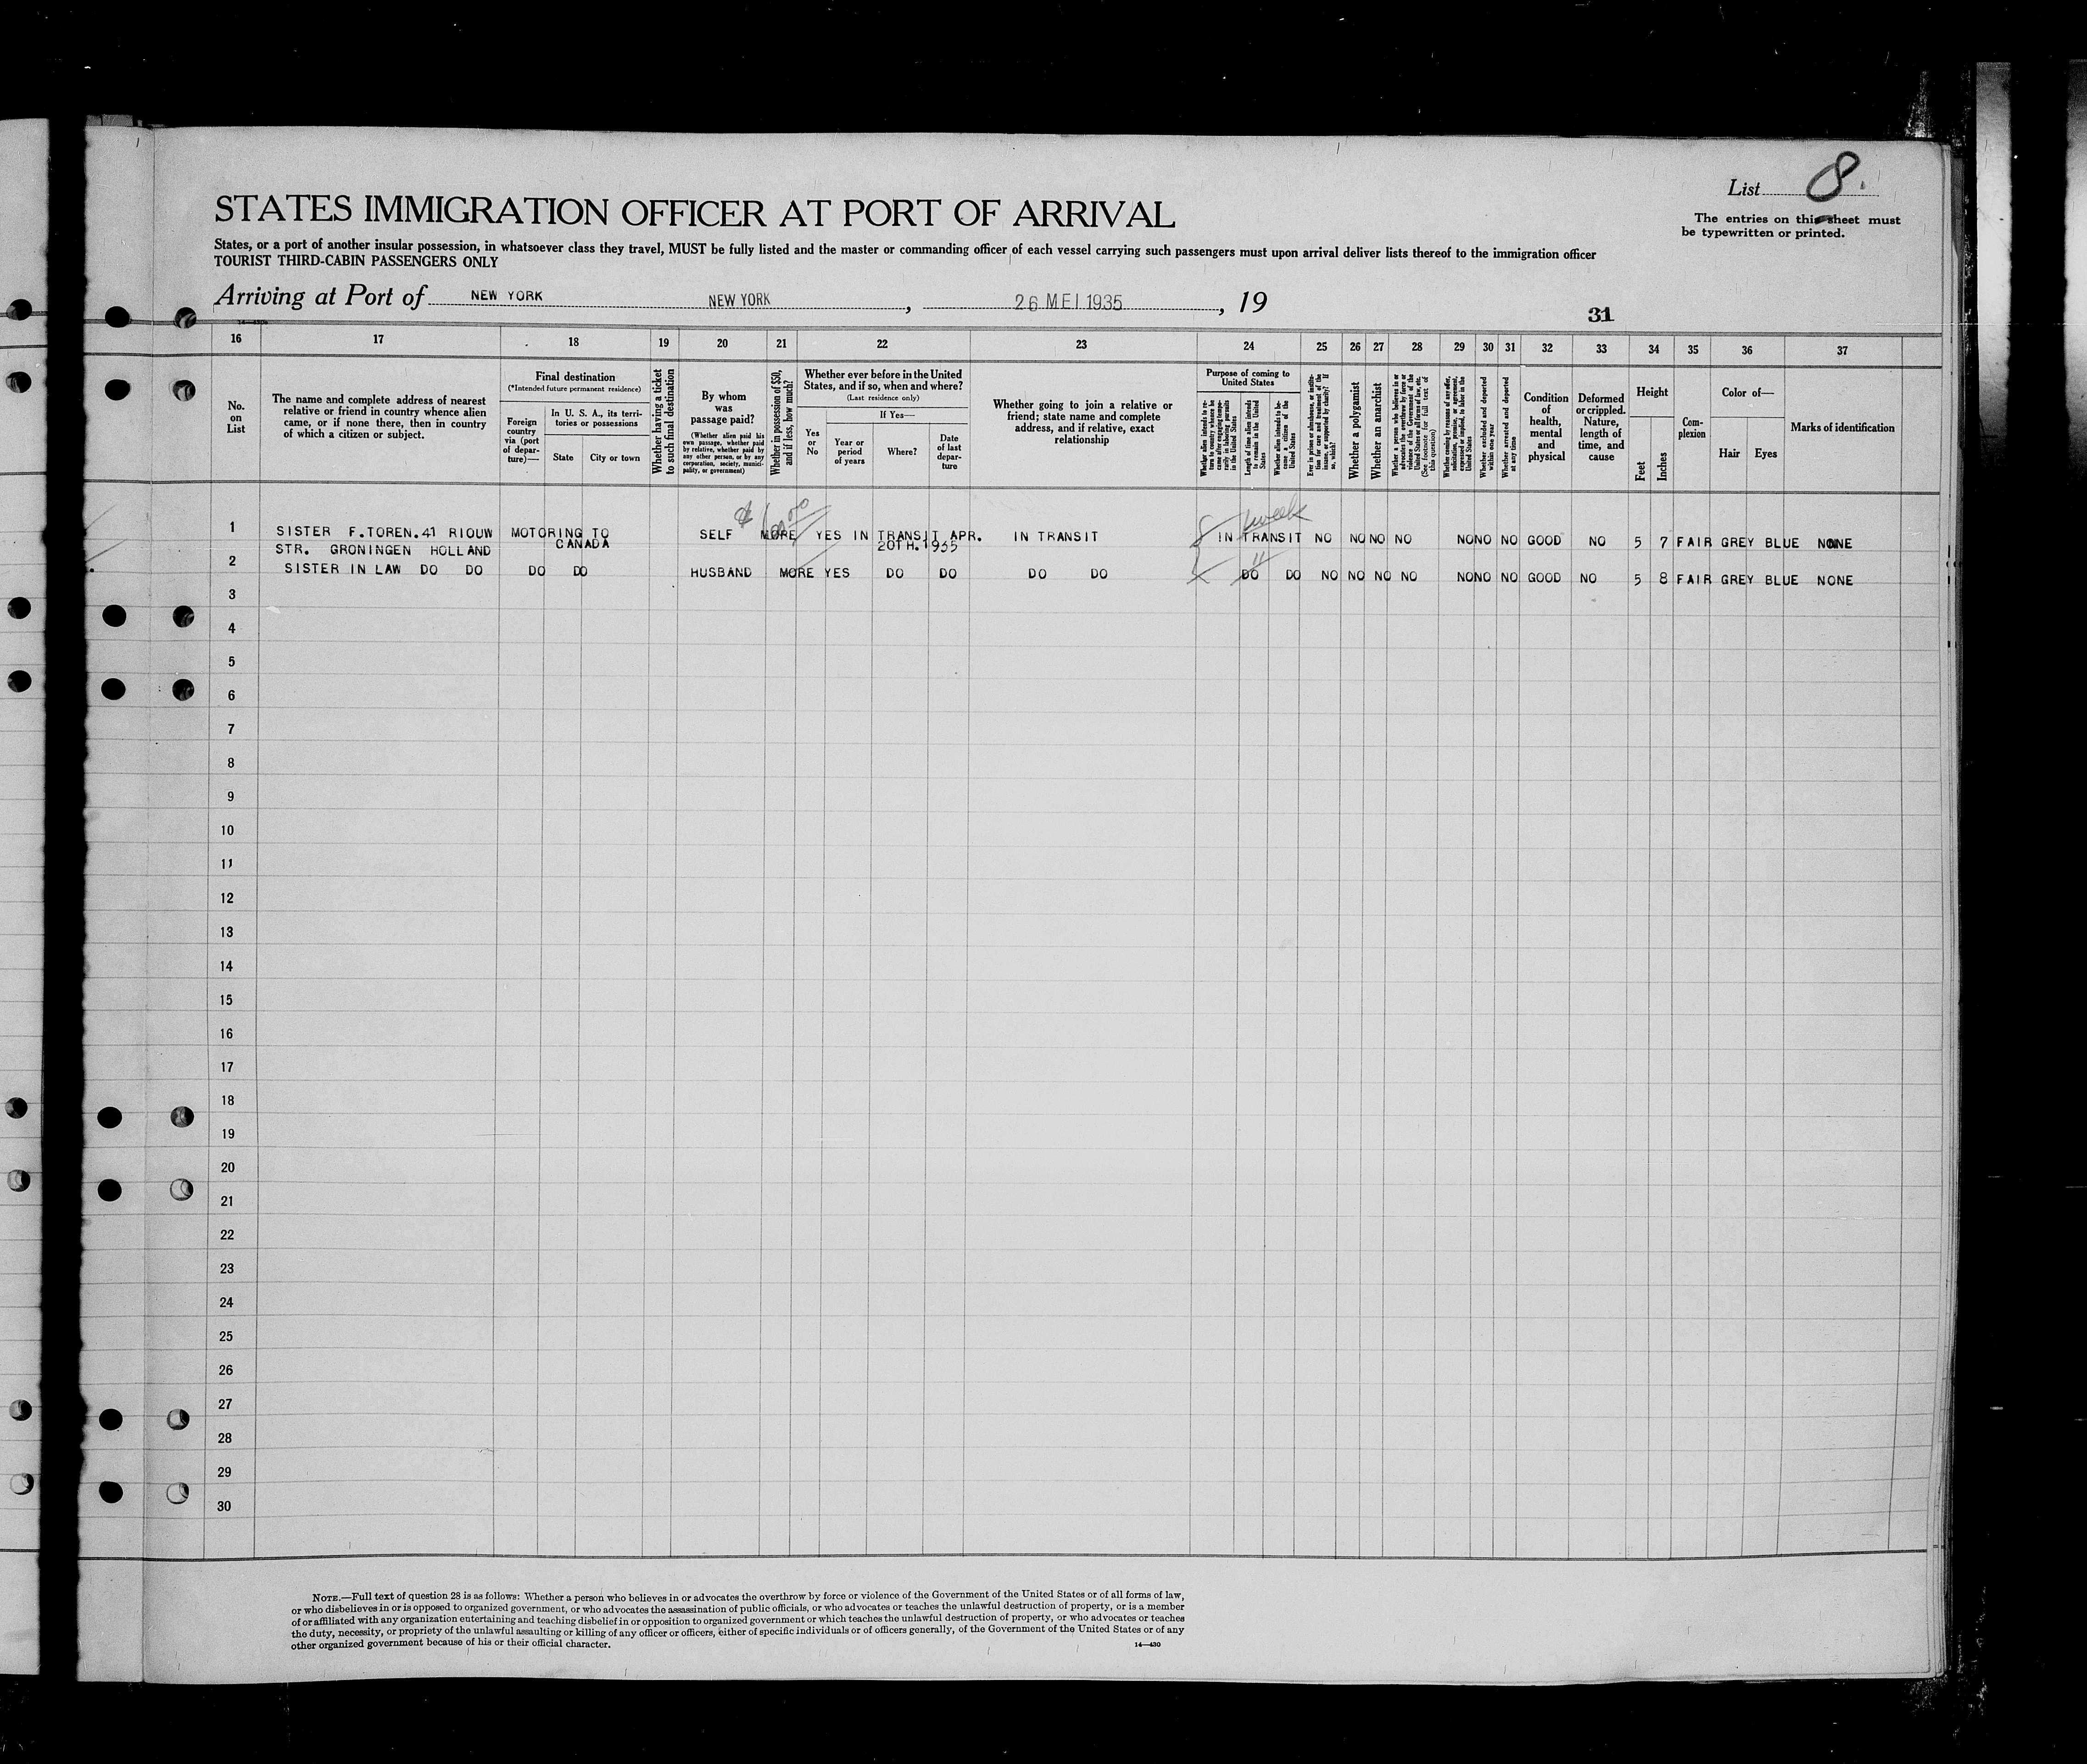 List 8.
The entries on this sheet must
be typewritten or printed.
STATES IMMIGRATION OFFICER AT PORT OF ARRIVAL
States, or a port of another insular possession, in whatsoever class they travel, MUST be fully listed and the master or commanding officer of each vessel carrying such passengers must upon arrival deliver lists thereof to the immigration officer
TOURIST THIRD-CABIN PASSENGERS ONLY
Arriving at Port of NEW YORK NEW YORK, 26 MEI 1935, 19
31
16 17 18 19 20 21 22 23 24 25 26 27 28 29 30 31 32 33 34 35 36 37
No.
on
List
The name and complete address of nearest
relative or friend in country whence alien
came, or if none there, then in country
of which a citizen or subject.
Final destination
(*Intended future permanent residence)
Foreign
country
via (port
of depar-
ture)—
In U. S. A., its terri-
tories or possessions
State
City or town
Whether having a ticket
to such final destination
By whom
was
passage paid?
(Whether alien paid his
own passage, whether paid
by relative, whether paid by
any other person, or by any
corporation, society, munici-
pality, or government)
Whether in possession of $50,
and if less, how much?
Whether ever before in the United
States, and if so, when and where?
(Last residence only)
Yes
or
No
If Yes—
Year or
period
of years
Where?
Date
of last
depar-
ture
Whether going to join a relative or
friend; state name and complete
address, and if relative, exact
relationship
Purpose of coming to
United States
Whether alien intends to re-
turn to country whence he
came after engaging tempo-
rarily in laboring pursuits
in the United States
Length of time alien intends
to remain in the United
States
Whether alien intends to be-
come a citizen of the
United States
Ever in prison or almshouse, or institu-
tion for care and treatment of the
insane, or supported by charity? If
so, which?
Whether a polygamist
Whether an anarchist
Whether a person who believes in or
advocates the overthrow by force or
violence of the Government of the
United States or all forms of law, etc.
(See footnote for full text of
this question)
Whether coming by reasons of any offer,
solicitation, promise, or agreement,
expressed or implied, to labor in the
United States
Whether excluded and deported
within one year
Whether arrested and deported
at any time
Condition
of
health,
mental
and
physical
Deformed
or crippled.
Nature,
length of
time, and
cause
Height
Feet
Inches
Com-
plexion
Color of—
Hair
Eyes
Marks of identification
1 week
1 SISTER F.TOREN.41 RIOUW MOTORING TO SELF MORE YES IN TRANSIT APR. IN TRANSIT IN TRANSIT NO NO NO NO NO NO NO GOOD NO 5 7 FAIR GREY BLUE NONE
STR. GRONINGEN HOLLAND CANADA 20TH.1935
2 SISTER IN LAW DO DO DO DO HUSBAND MORE YES DO DO DO DO DO DO NO NO NO NO NO NO NO GOOD NO 5 8 FAIR GREY BLUE NONE
3
4
5
6
7
8
9
10
11
12
13
14
15
16
17
18
19
20
21
22
23
24
25
26
27
28
29
30
NOTE.—Full text of question 28 is as follows: Whether a person who believes in or advocates the overthrow by force or violence of the Government of the United States or of all forms of law,
or who disbelieves in or is opposed to organized government, or who advocates the assassination of public officials, or who advocates or teaches the unlawful destruction of property, or is a member
of or affiliated with any organization entertaining and teaching disbelief in or opposition to organized government or which teaches the unlawful destruction of property, or who advocates or teaches
the duty, necessity, or propriety of the unlawful assaulting or killing of any officer or officers, either of specific individuals or of officers generally, of the Government of the United States or of any
other organized government because of his or their official character.
14—430